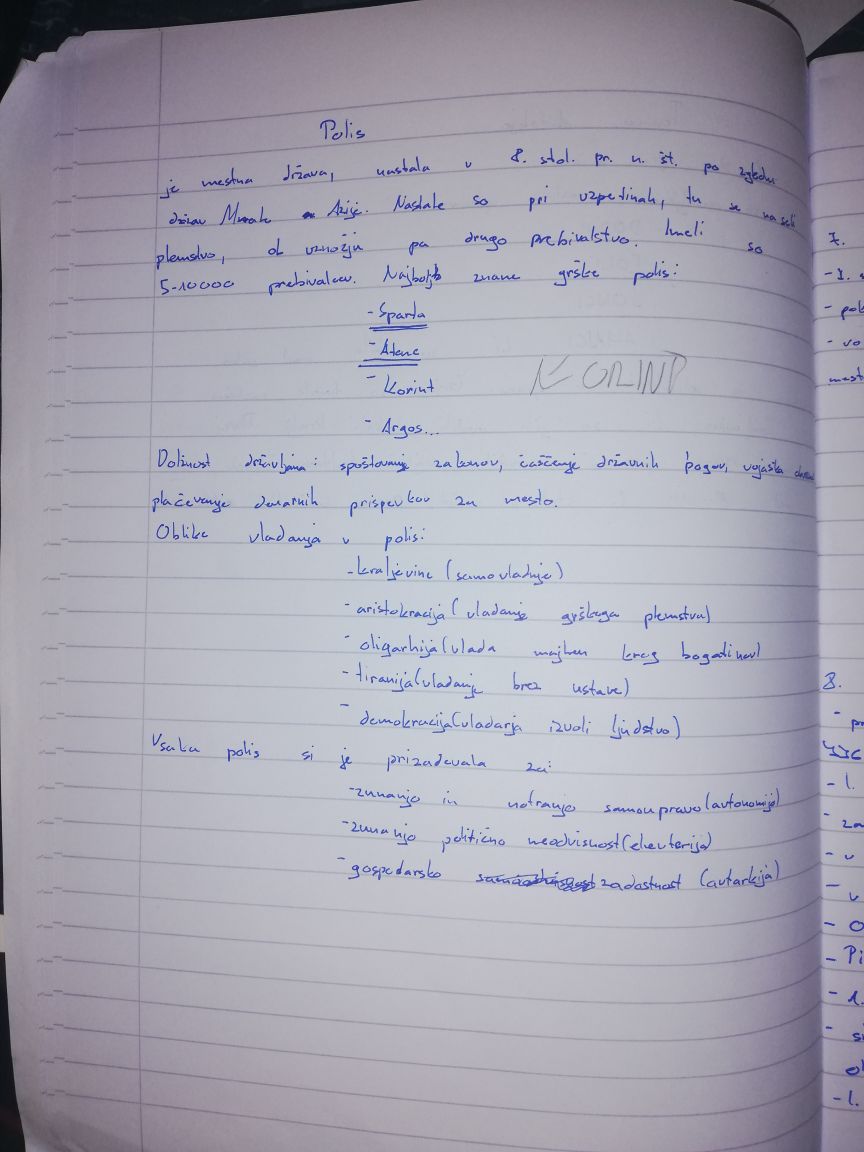 Polis
je mestna država, nastala v 8. stol. pr. n. št. po zgledu
držav Male Azije. Nastale so pri vzpetinah, tu se naseli
plemstvo, ob vznožju pa drugo prebivalstvo. Imeli so
5-10000 prebivalcev. Najbolj znane grške polis:
- Sparta
- Atene
- Korint
KORINT
- Argos...
Dolžnost državljana: spoštovanje zakonov, čaščenje državnih bogov, vojaška
plačevanje denarnih prispevkov za mesto.
Oblike vladanja v polis:
- kraljevine (samovladnje)
- aristokracija (vladanje grškega plemstva)
- oligarhija (vlada majhen krog bogatinov)
- tiranija (vladanje brez ustave)
- demokracija (vladarja izvoli ljudstvo)
Vsaka polis si je prizadevala za:
- zunanjo in notranjo samoupravo (autonomija)
- zunanjo politično neodvisnost (eleuterija)
- gospodarsko zadostnost (autarkija)
7.
- 1. s
- pol
- vo
mest
8.
- pr
- 1.
- za
- v
- v
- o
- Pi
- 1.
- si
ol
- 1.